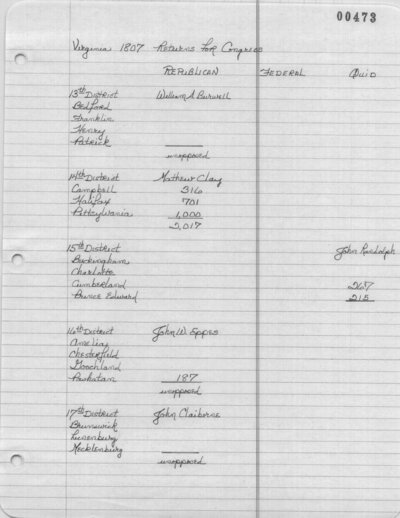 00473
Virginia 1807 Returns For Congress
REPUBLICAN FEDERAL QUID
13th District William A Burwell
Bedford
Franklin
Henry
Patrick
unopposed
14th District Mathew Clay
Campbell 316
Halifax 701
Pittsylvania 1,000
2,017
15th District John Randolph
Buckingham
Charlotte
Cumberland 267
Prince Edward 215
16th District John W. Eppes
Amelia
Chesterfield
Goochland
Powhatan 187
unopposed
17th District John Claiborne
Brunswick
Lunenburg
Mecklenburg
unopposed